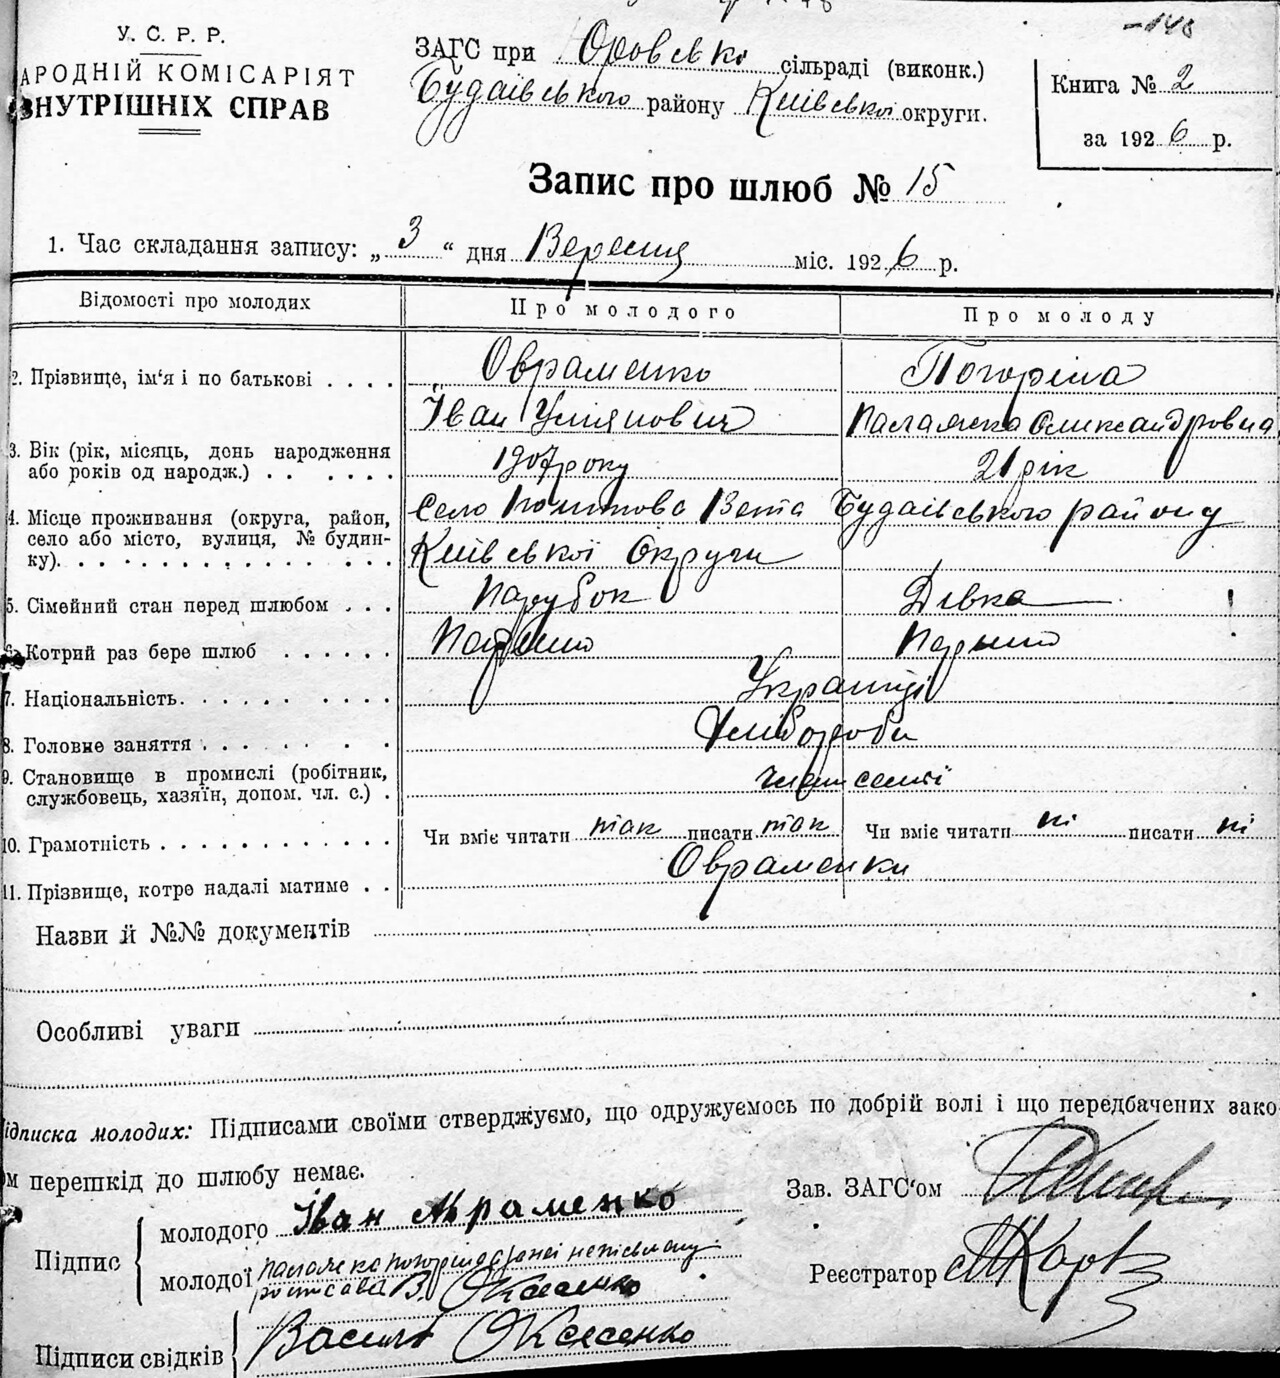 -148
У. С. Р. Р.
АРОДНІЙ КОМІСАРІЯТ
ВНУТРІШНІХ СПРАВ
ЗАГС при Юровські сільраді (виконк.)
Будаївського району Київської округи.
Книга № 2
за 1926 р.
Запис про шлюб № 15
1. Час складання запису: „3“ дня Вересня міс. 1926 р.
Відомості про молодих
Про молодого
Про молоду
2. Прізвище, ім‘я і по батькові . . . .
Овраменко
Іван Улянович
Погоріла
Палажка Олександровна
3. Вік (рік, місяць, день народження
або років од народж.) . . . . . .
1907 року
21 рік
4. Місце проживання (округа, район,
село або місто, вулиця, № будин-
ку). . . . . . . . . . . . . . .
Село Поштова Вета Будаівського району
Київської Округи
5. Сімейний стан перед шлюбом . . .
Парубок
Дівка
6. Котрий раз бере шлюб . . . . . .
Первий
7. Національність. . . . . . . . . .
Українці
8. Головне заняття . . . . . . . .
Хлібороби
9. Становище в промислі (робітник,
службовець, хазяїн, допом. чл. с.) .
члени семї
10. Грамотність . . . . . . . . . . . .
Чи вміє читати так писати так
Чи вміє читати ні писати ні
11. Прізвище, котре надалі матиме . .
Овраменки
Назви й №№ документів
Особливі уваги
ідписка молодих: Підписами своїми стверджуємо, що одружуємось по добрій волі і що передбачених зако-
м перешкід до шлюбу немає.
Підпис
молодого Іван Авраменко
молодої Палажка Погоріла неписьмену
росписавсь В. Оксесенко
Підписи свідків
Василь Оксесенко
Зав. ЗАГС‘ом
Реєстратор